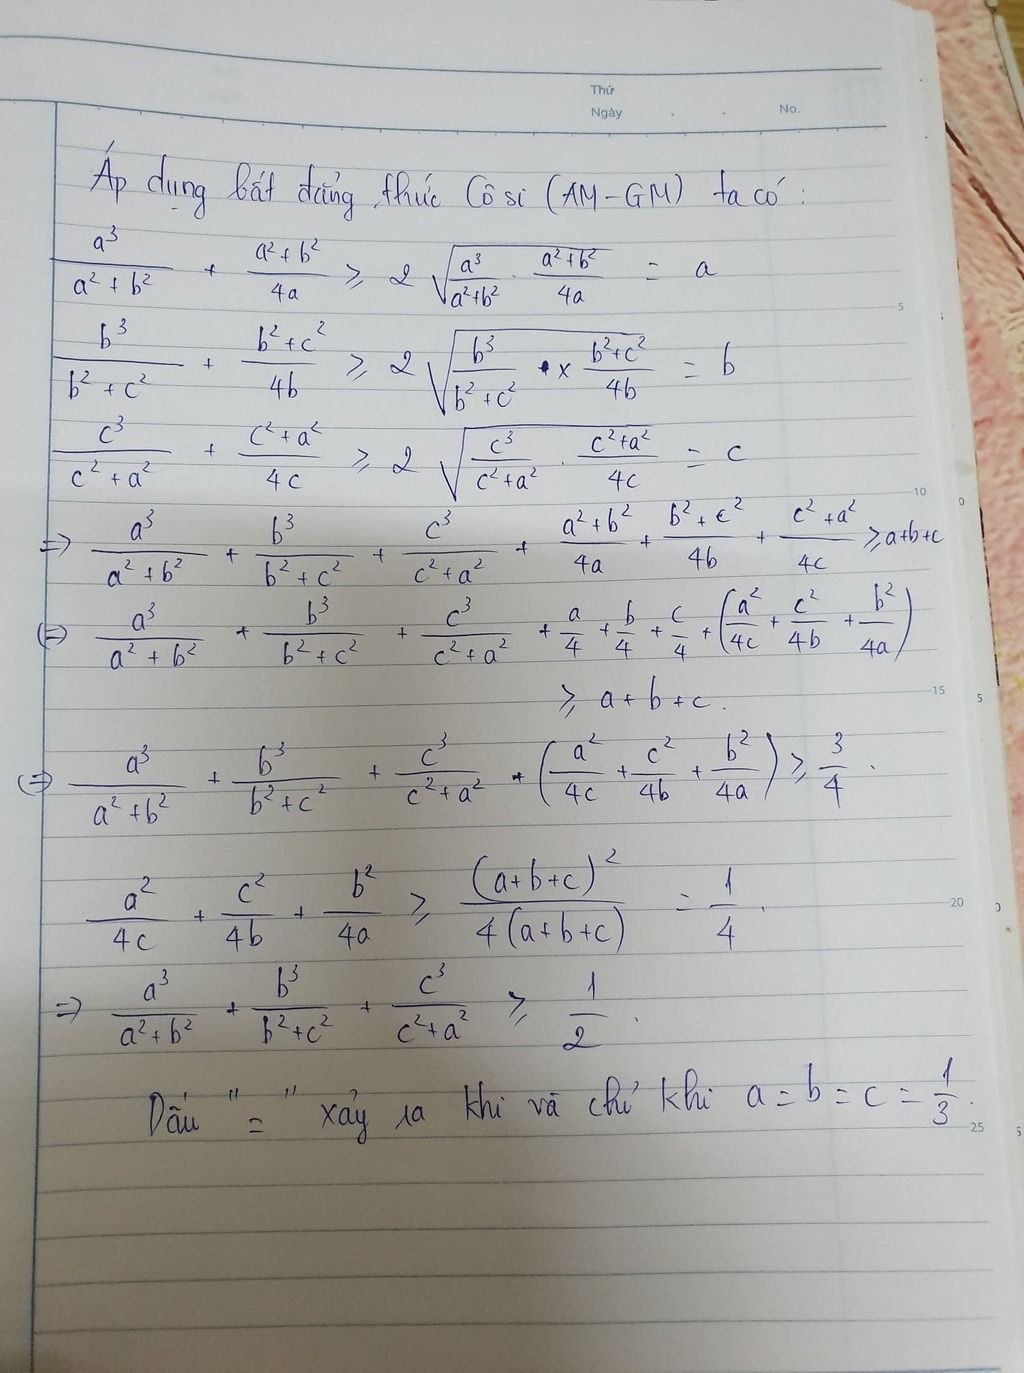 Thứ
Ngày . . No.
Áp dụng bất đẳng thức Côsi (AM-GM) ta có:
a³/(a²+b²) + (a²+b²)/4a ≥ 2√(a³/(a²+b²) . (a²+b²)/4a) = a
5
b³/(b²+c²) + (b²+c²)/4b ≥ 2√(b³/(b²+c²) × (b²+c²)/4b) = b
c³/(c²+a²) + (c²+a²)/4c ≥ 2√(c³/(c²+a²) . (c²+a²)/4c) = c
10
⇒ a³/(a²+b²) + b³/(b²+c²) + c³/(c²+a²) + (a²+b²)/4a + (b²+c²)/4b + (c²+a²)/4c ≥ a+b+c
(=) a³/(a²+b²) + b³/(b²+c²) + c³/(c²+a²) + a/4 + b/4 + c/4 + (a²/4c + c²/4b + b²/4a)
≥ a+b+c.
15
(=) a³/(a²+b²) + b³/(b²+c²) + c³/(c²+a²) + (a²/4c + c²/4b + b²/4a) ≥ 3/4.
a²/4c + c²/4b + b²/4a ≥ (a+b+c)²/4(a+b+c) = 1/4.
20
⇒ a³/(a²+b²) + b³/(b²+c²) + c³/(c²+a²) ≥ 1/2.
Dấu "=" xảy ra khi và chỉ khi a=b=c=1/3.
25